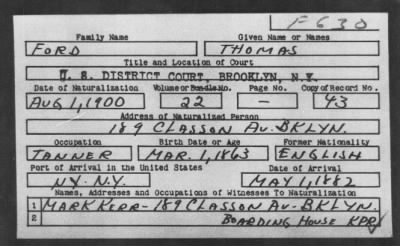 F-630
Family Name Given Name or Names
FORD THOMAS
Title and Location of Court
U. S. DISTRICT COURT, BROOKLYN, N.Y.
Date of Naturalization Volume or Bundle No. Page No. Copy of Record No.
AUG 1, 1900 22 - 43
Address of Naturalized Person
189 CLASSON AV. BKLYN.
Occupation Birth Date or Age Former Nationality
TANNER MAR. 1, 1863 ENGLISH
Port of Arrival in the United States Date of Arrival
N.Y. N.Y. MAY 1, 1882
Names, Addresses and Occupations of Witnesses To Naturalization
1 MARK KERR - 189 CLASSON AV. BKLYN.
2 BOARDING HOUSE KPR